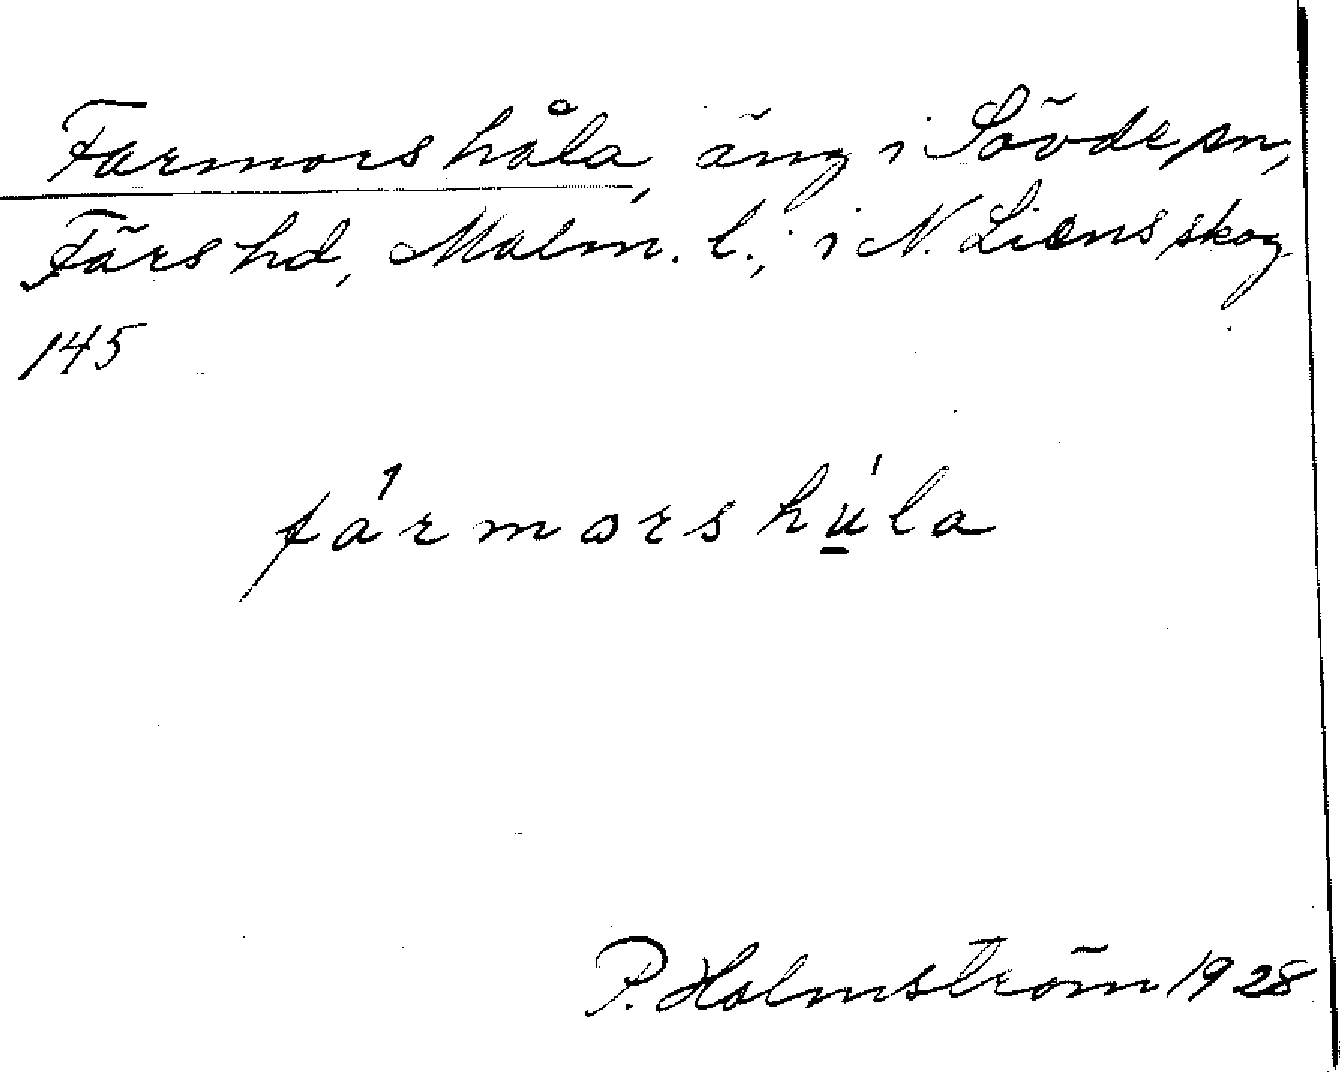 Farmorshåla, äng i Sövde sn,
Färs hd, Malm. l.; i N. Liens skog
145
fármorshú̲la
P. Holmström 1928